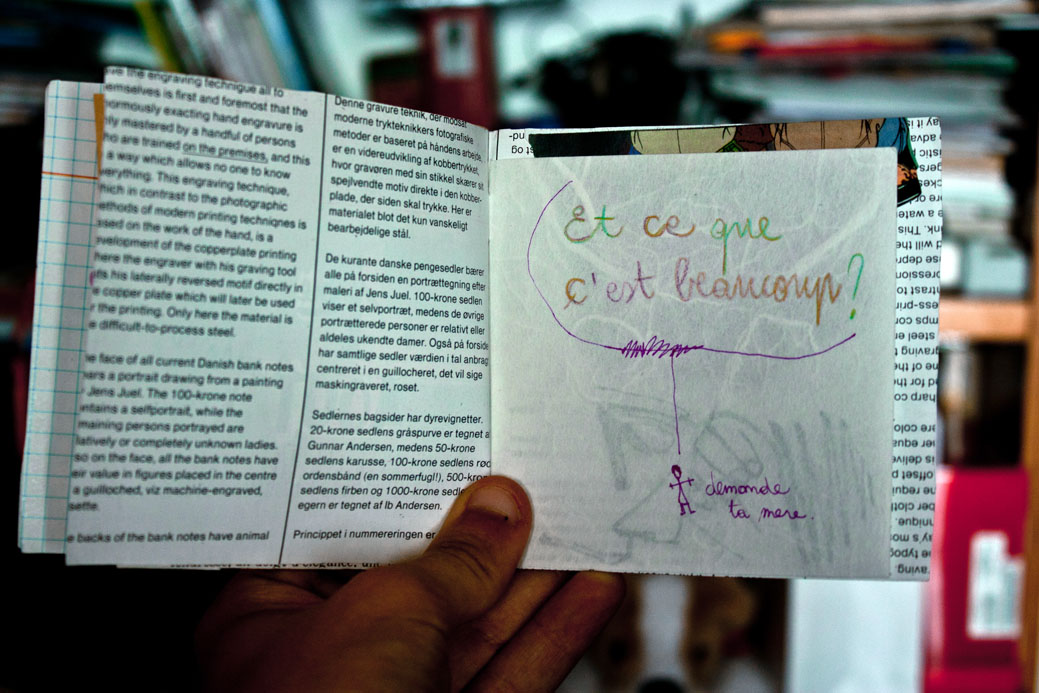 ve the engraving technique all to
emselves is first and foremost that the
normously exacting hand engraver is
ly mastered by a handful of persons
no are trained on the premises, and this
a way which allows no one to know
verything. This engraving technique,
hich in contrast to the photographic
ethods of modern printing techniqnes is
ased on the work of the hand, is a
velopment of the copperplate printing
here the engraver with his graving tool
fts his laterally reversed motif directly in
e copper plate which will later be used
r the printing. Only here the material is
e difficult-to-process steel.
he face of all current Danish bank notes
ears a portrait drawing from a painting
Jens Juel. The 100-krone note
ntains a selfportrait, while the
maining persons portrayed are
latively or completely unknown ladies.
so on the face, all the bank notes have
eir value in figures placed in the centre
a guilloched, viz machine-engraved,
settle.
e backs of the bank notes have animal
Denne gravure teknik, der modsat
moderne trykteknikkers fotografiske
metoder er baseret på håndens arbejde,
er en videreudvikling af kobbertrykket,
hvor gravøren med sin stikkel skærer sit
spejlvendte motiv direkte i den kobber-
plade, der siden skal trykke. Her er
materialet blot det kun vanskeligt
bearbejdelige stål.
De kurante danske pengesedler bærer
alle på forsiden en portrættegning efter
maleri af Jens Juel. 100-krone sedlen
viser et selvportræt, medens de øvrige
portrætterede personer er relativt eller
aldeles ukendte damer. Også på forside
har samtlige sedler værdien i tal anbrag
centreret i en guillocheret, det vil sige
maskingraveret, roset.
Sedlernes bagsider har dyrevignetter.
20-krone sedlens gråspurve er tegnet a
Gunnar Andersen, medens 50-krone
sedlens karusse, 100-krone sedlens rød
ordensbånd (en sommerfugl!), 500-kron
sedlens firben og 1000-krone sedle
egern er tegnet af Ib Andersen.
Princippet i nummereringen er
Et ce que
c'est beaucoup?
demande
ta mere.